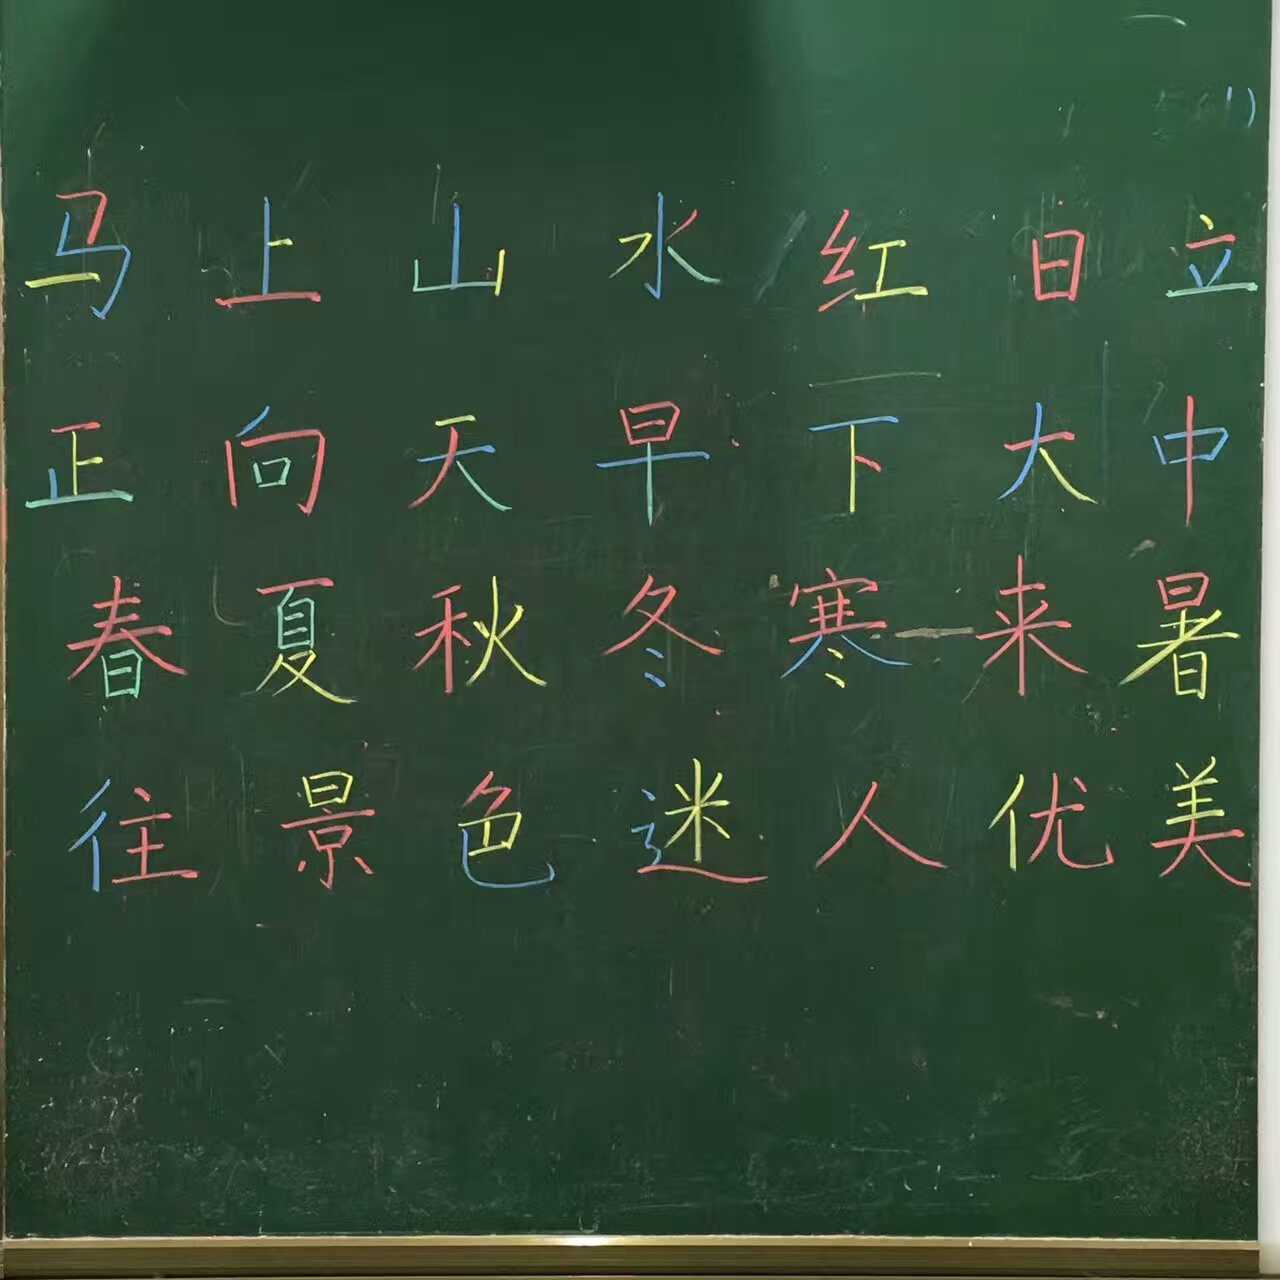 马上山水红日立
正向天早下大中
春夏秋冬寒来暑
往景色迷人优美